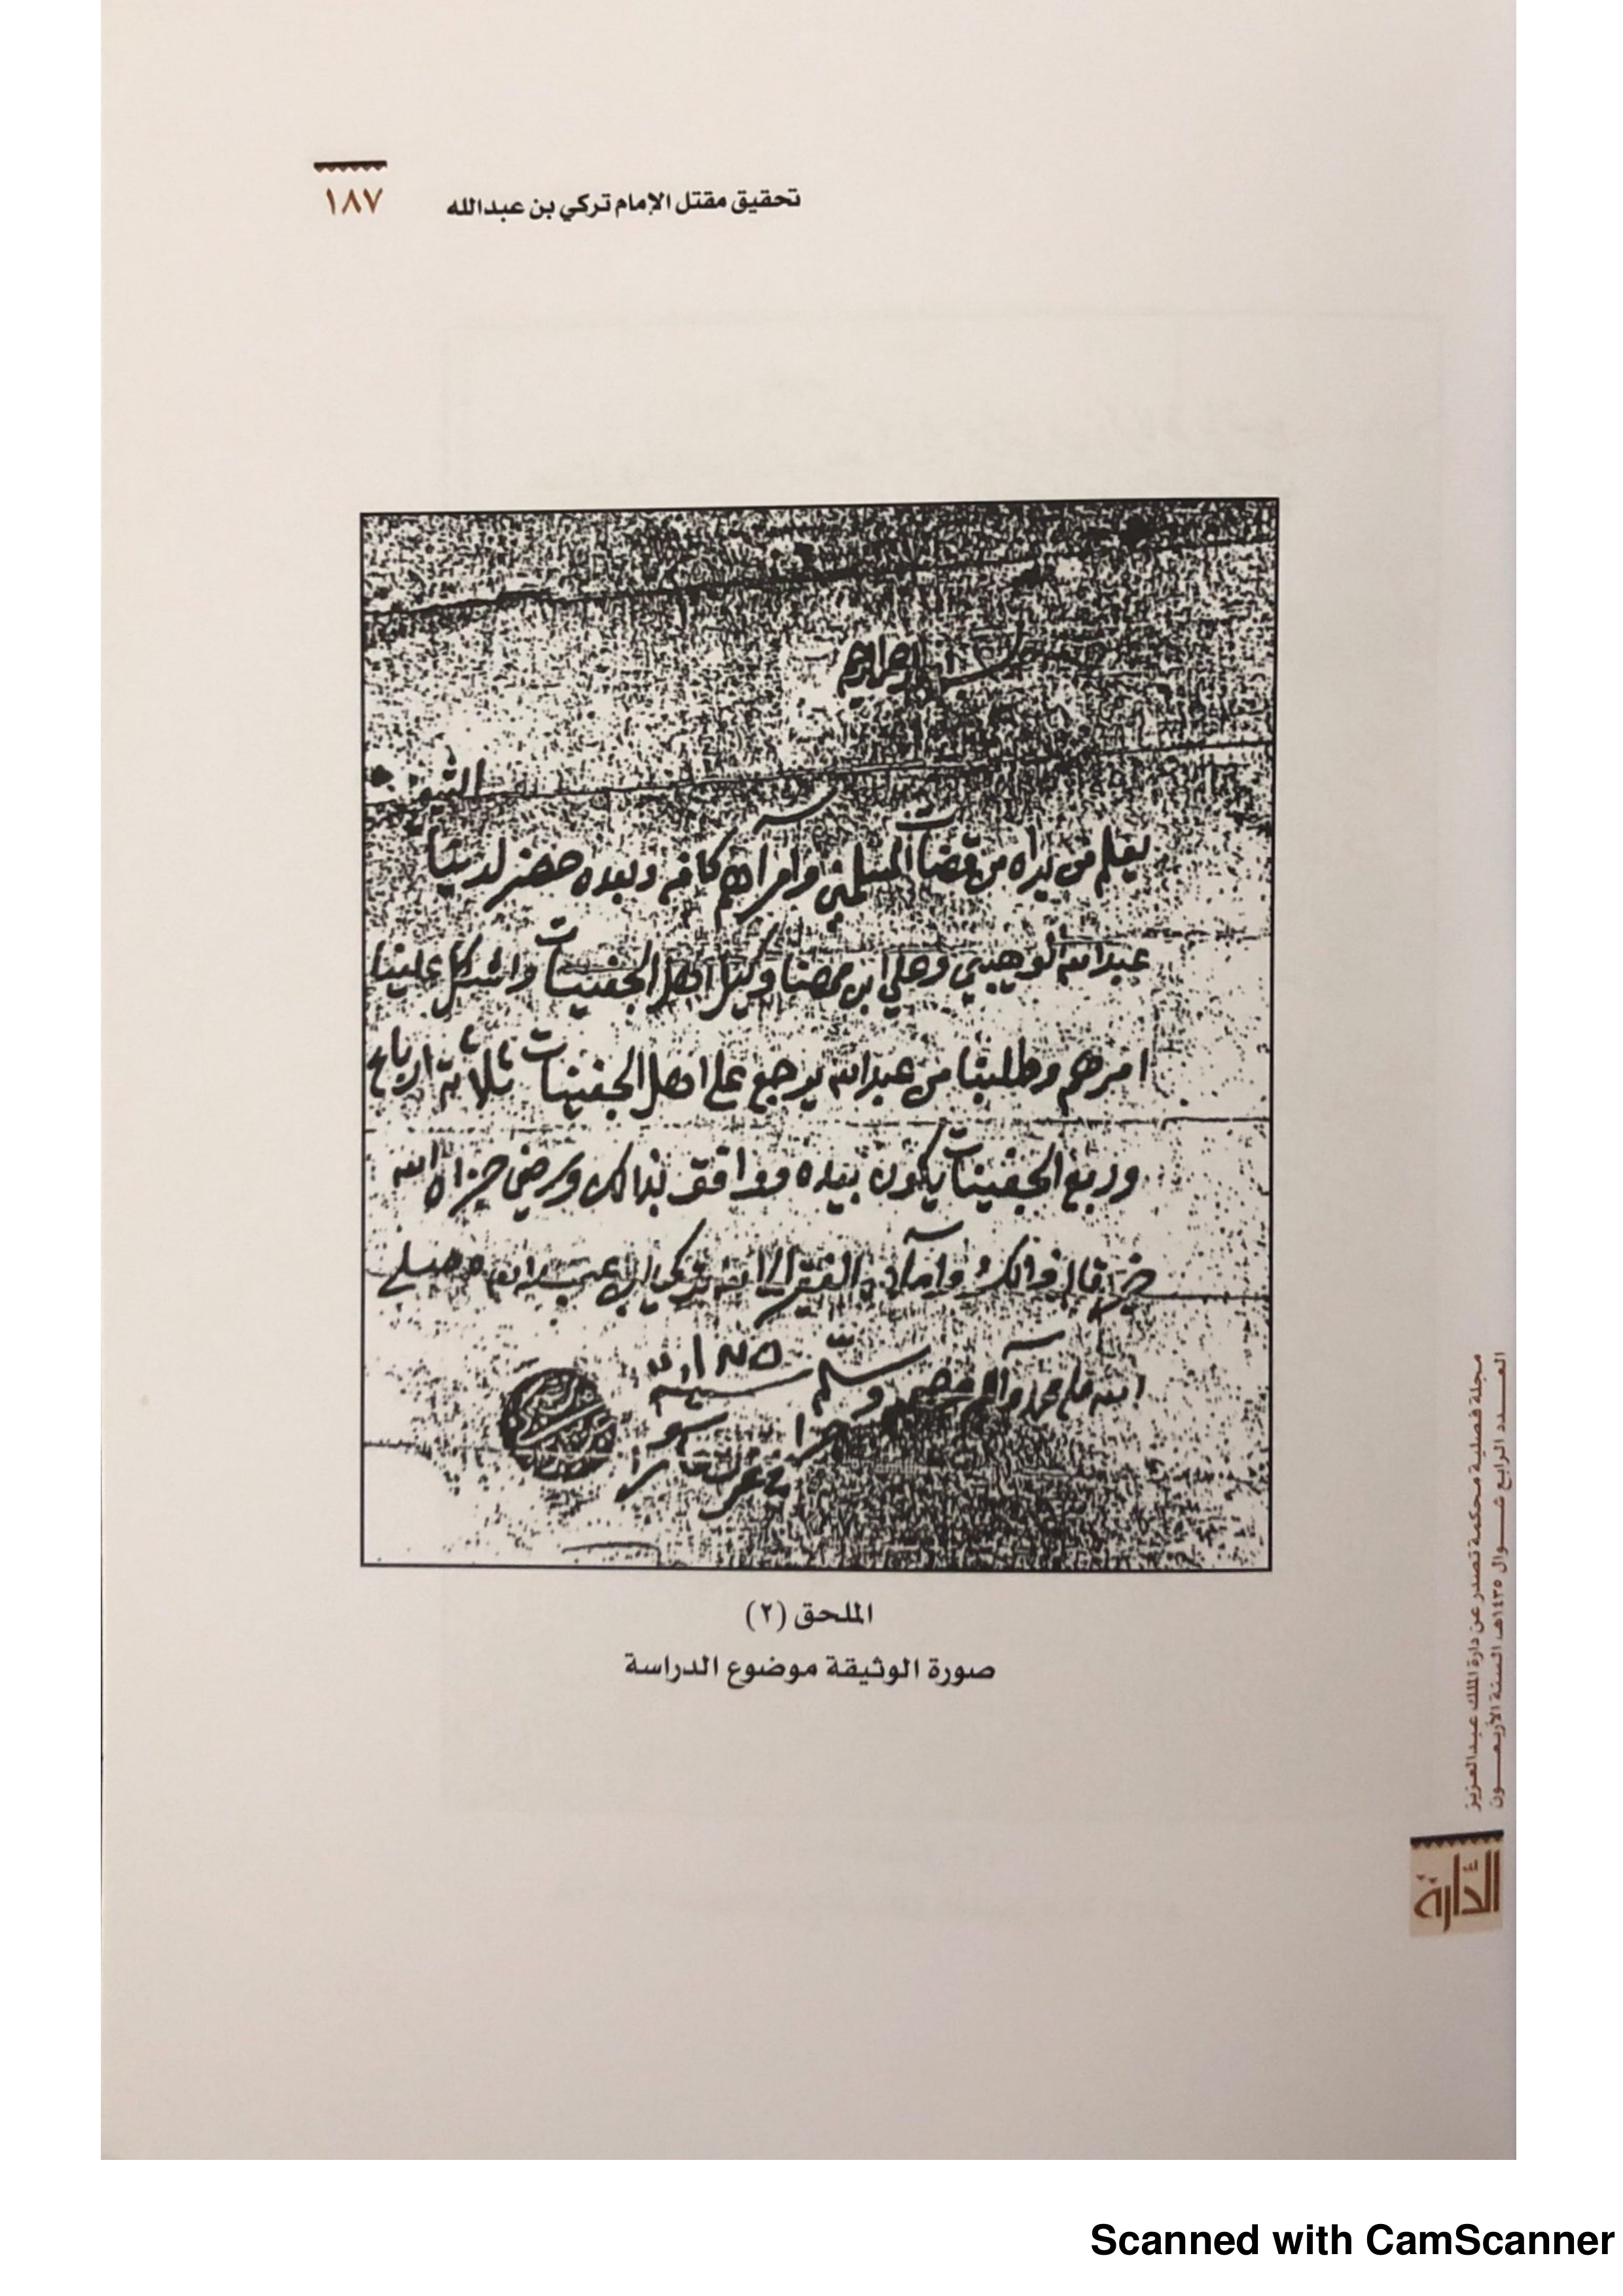 تحقيق مقتل الإمام تركي بن عبدالله
١٨٧
الرحمن الرحيم
يعلم من يراه من قضات المسلمين وامرآهم كافه وبعده حضر لدينا
عبدالله الوهيبي وعلي ابن وكيل اهل الجفينات واشكل علينا
امرهم وطلبنا من عبدالله يرجع على اهل الجفينات ثلاثة ارباع
وربع الجفينات يكون بيده ووافق بذالك ورضي جزاه الله
خير قال ذالك وآملاه الفقير الى الله تركي ابن عبدالله وصلى
الله على محمد وآله وصحبه وسلم
الملحق (٢)
صورة الوثيقة موضوع الدراسة
مجلة فصلية محكمة تصدر عن دارة الملك عبدالعزيز
العدد الرابع شوال ١٤٣٥هـ، السنة الأربعون
الدارة
Scanned with CamScanner